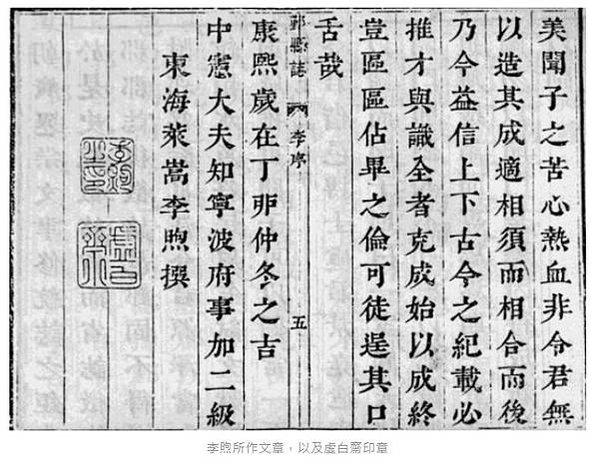 美聞子之苦心熱血非令君無
以造其成適相須而相合而後
乃今益信上下古今之紀載必
推才與識全者克成始以成終
豈區區佔畢之倫可徒逞其口
舌哉
鄞縣誌 李序 五
康熙歲在丁卯仲冬之吉
中憲大夫知寧波府事加二級
東海萊嵩李煦撰
虛白齋
李煦所作文章，以及虛白齋印章